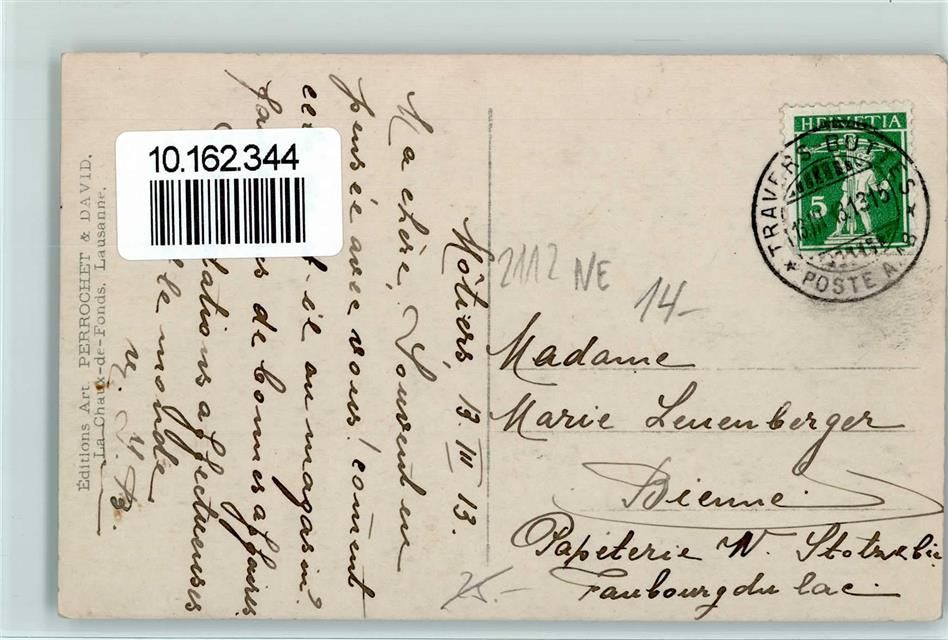 10.162.344
Éditions Art. PERROCHET & DAVID.
La Chaux-de-Fonds, Lausanne.
Môtiers, 13. III 13.
Ma chère, Souvent en
pensée avec vous! coment
-il au magasin?
de bonnes affaires
affectueuses
le monde
HELVETIA
5
TRAVERS-BUTTES
POSTE AMB
2112 NE
14-
Madame
Marie Leuenberger
Bienne
Papeterie W.
Faubourg du lac
25.-